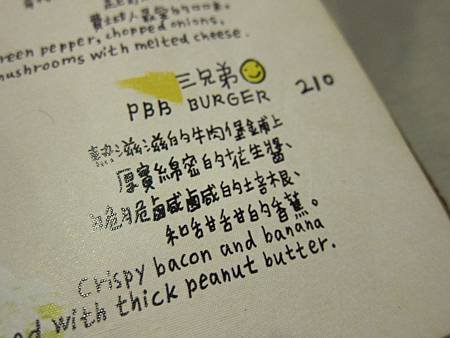 reen pepper, chopped onions,
mushrooms with melted cheese.
三兄弟
PBB BURGER 210
熱滋滋的牛肉堡鋪上
厚實綿密的花生醬、
脆脆鹹鹹的培根、
和甜甜的香蕉。
Crispy bacon and banana
ed with thick peanut butter.